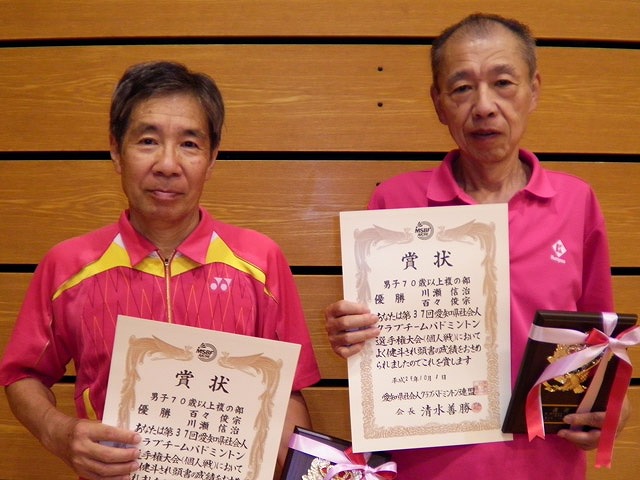 MSBF
賞状
男子70歳以上複の部
優勝 百々俊宗
川瀬信治
あなたは第37回愛知県社会人
クラブチームバドミントン
選手権大会(個人戦)において
MSBF
賞状
男子70歳以上複の部
優勝 川瀬信治
百々俊宗
あなたは第37回愛知県社会人
クラブチームバドミントン
選手権大会(個人戦)において
よく健斗され頭書の成績をおさめ
られましたのでこれを賞します
愛知県社会人クラブバドミントン連盟
会長 清水善勝